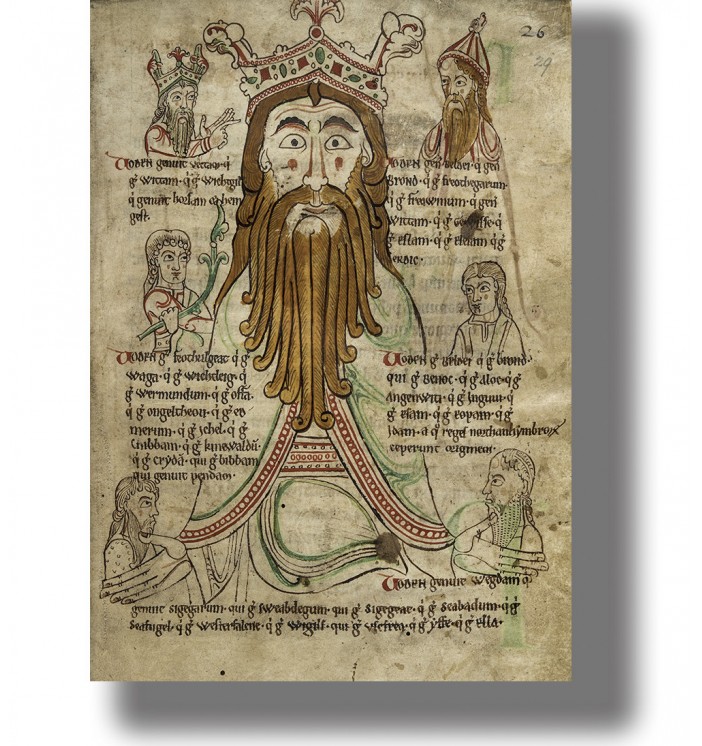 26
29
Uoden genuit vectam· q̄
g̊ wittam· q̄ g̊ wichtgils
q̄ genuit horsam & hen
gest·
Uoden gen̄ beldei· q̄ gen̄
brond· q̄ g̊ freothegarum
q̄ g̊ freawinum· q̄ gen̄
wittam· q̄ g̊ gewisse· q̄
g̊ eslam· q̄ g̊ elesam q̄ g̊
cerdic·
Uoden g̊ feothulgeat q̄ g̊
waga· q̄ g̊ wichtleig· q̄
g̊ wermundum· q̄ g̊ offa·
q̄ g̊ ongeltheou· q̄ g̊ eo
merum· q̄ g̊ ichel· q̄ g̊
cnibbam· q̄ g̊ kinewaldū·
q̄ g̊ cryda· qui g̊ bibbam
qui genuit pendam·
Uoden g̊ beldei· q̄ g̊ brond·
qui g̊ benoc· q̄ g̊ aloc· q̄ g̊
angenwiti· q̄ g̊ inguui· q̄
g̊ esam· q̄ g̊ eopam· q̄ g̊
idam· a q̊ reges northanhymbroꝝ
ceperunt originem·
Uoden genuit wegdam q̄
genuit sigegarum· qui g̊ sweabdegum· qui g̊ sigegeat· q̄ g̊ seabadum· q̄ g̊
seafugel· q̄ g̊ westerfalcne· q̄ g̊ wigils· qui g̊ uscfrea· q̄ g̊ yffe· q̄ g̊ ella·